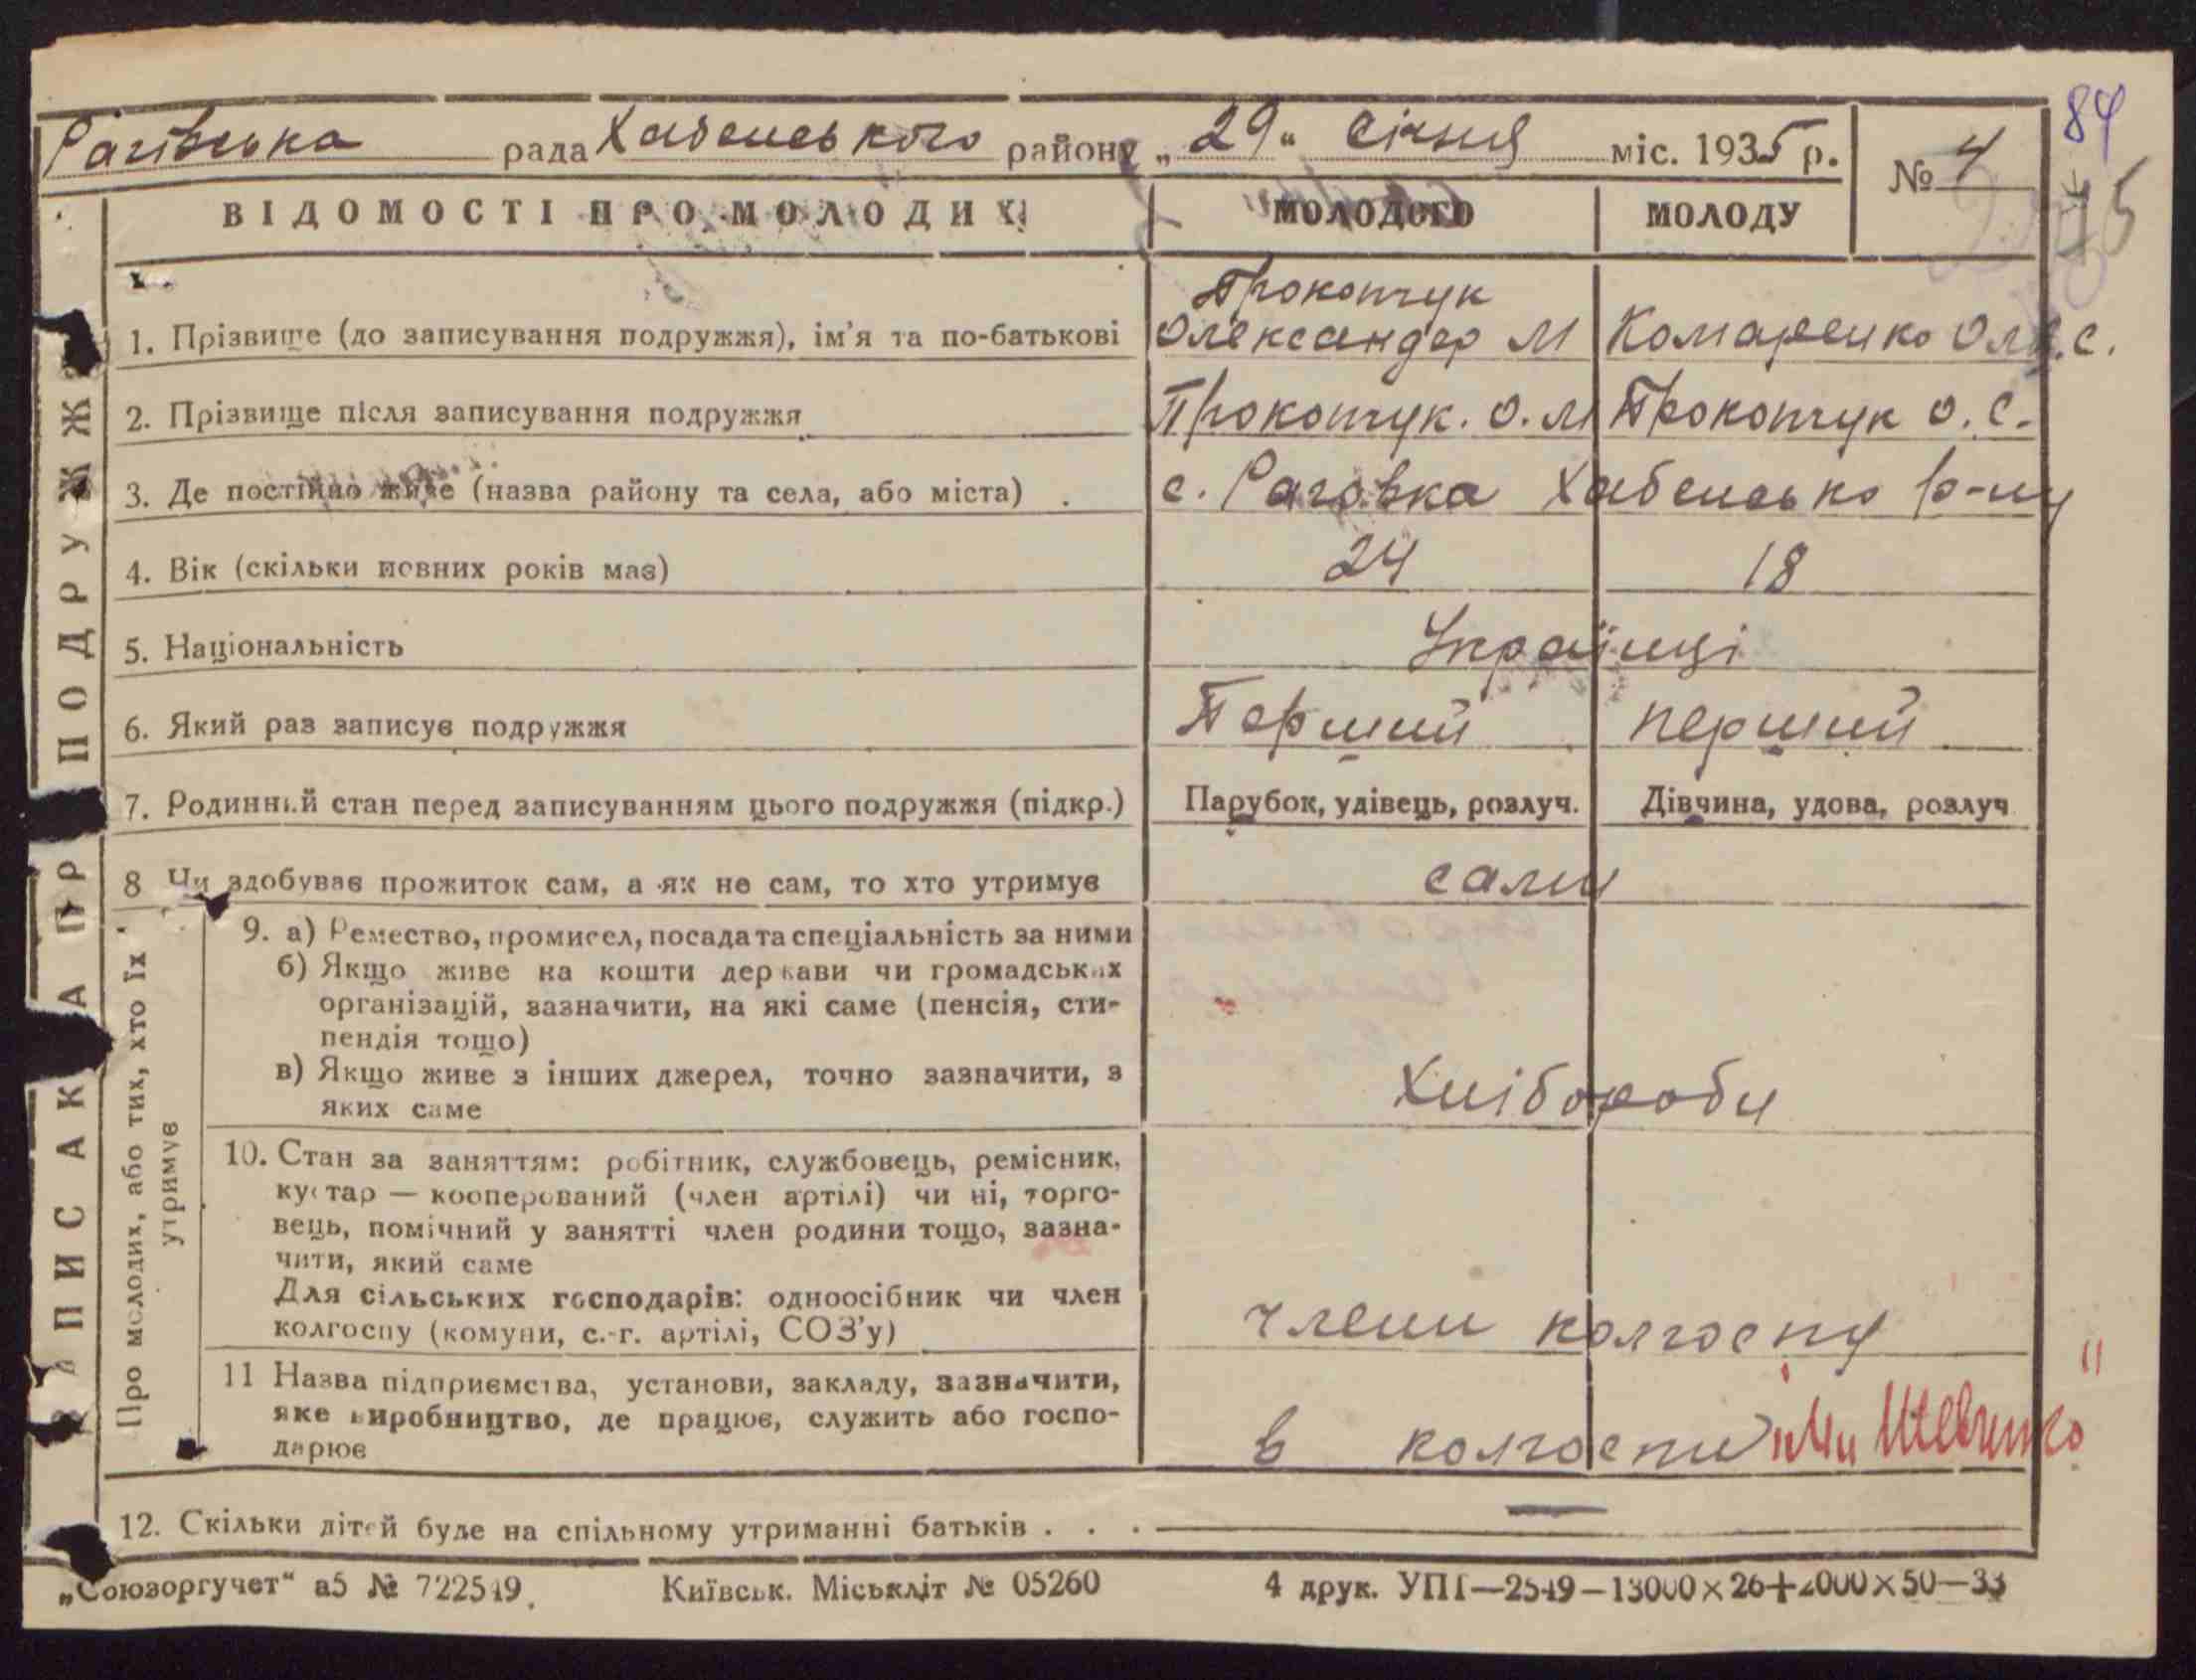 84
Рагівська рада Хабенського району „29“ Січня міс. 1935 р. № 4
ВІДОМОСТІ ПРО МОЛОДИХ МОЛОДОГО МОЛОДУ
Прокопчук
1. Прізвище (до записування подружжя), ім'я та по-батькові Олександер М Комаренко Оля. С.
2. Прізвище після записування подружжя Прокопчук. О. М Прокопчук О. С.
3. Де постійно живе (назва району та села, або міста) . с. Раговка Хабенсько р-ну
4. Вік (скільки повних років має) 24 18
5. Національність Українці
6. Який раз записує подружжя Перший перший
7. Родинний стан перед записуванням цього подружжя (підкр.) Парубок, удівець, розлуч. Дівчина, удова, розлуч
8 Чи здобуває прожиток сам, а як не сам, то хто утримує сами
9. а) Ремество, промисел, посада та спеціальність за ними
б) Якщо живе на кошти держави чи громадських
організацій, зазначити, на які саме (пенсія, сти-
пендія тощо)
в) Якщо живе з інших джерел, точно зазначити, з
яких саме Хлібороби
10. Стан за заняттям: робітник, службовець, ремісник,
кустар — кооперований (член артілі) чи ні, торго-
вець, помічний у занятті член родини тощо, зазна-
чити, який саме
Для сільських господарів: одноосібник чи член
колгоспу (комуни, с.-г. артілі, СОЗ'у) члени колгоспу
11 Назва підприємства, установи, закладу, зазначити,
яке виробництво, де працює, служить або госпо-
дарює в колгоспи "Ім Шевченко"
12. Скільки дітей буде на спільному утриманні батьків . . . —
ЗАПИС АКТА ПРО ПОДРУЖЖЯ
Про молодих, або тих, хто їх
утримує
„Союзоргучет“ а5 № 722549. Київськ. Міськліт № 05260 4 друк. УПП—2549—13000×26+2000×50—33